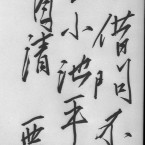 借问不
小池平
清西